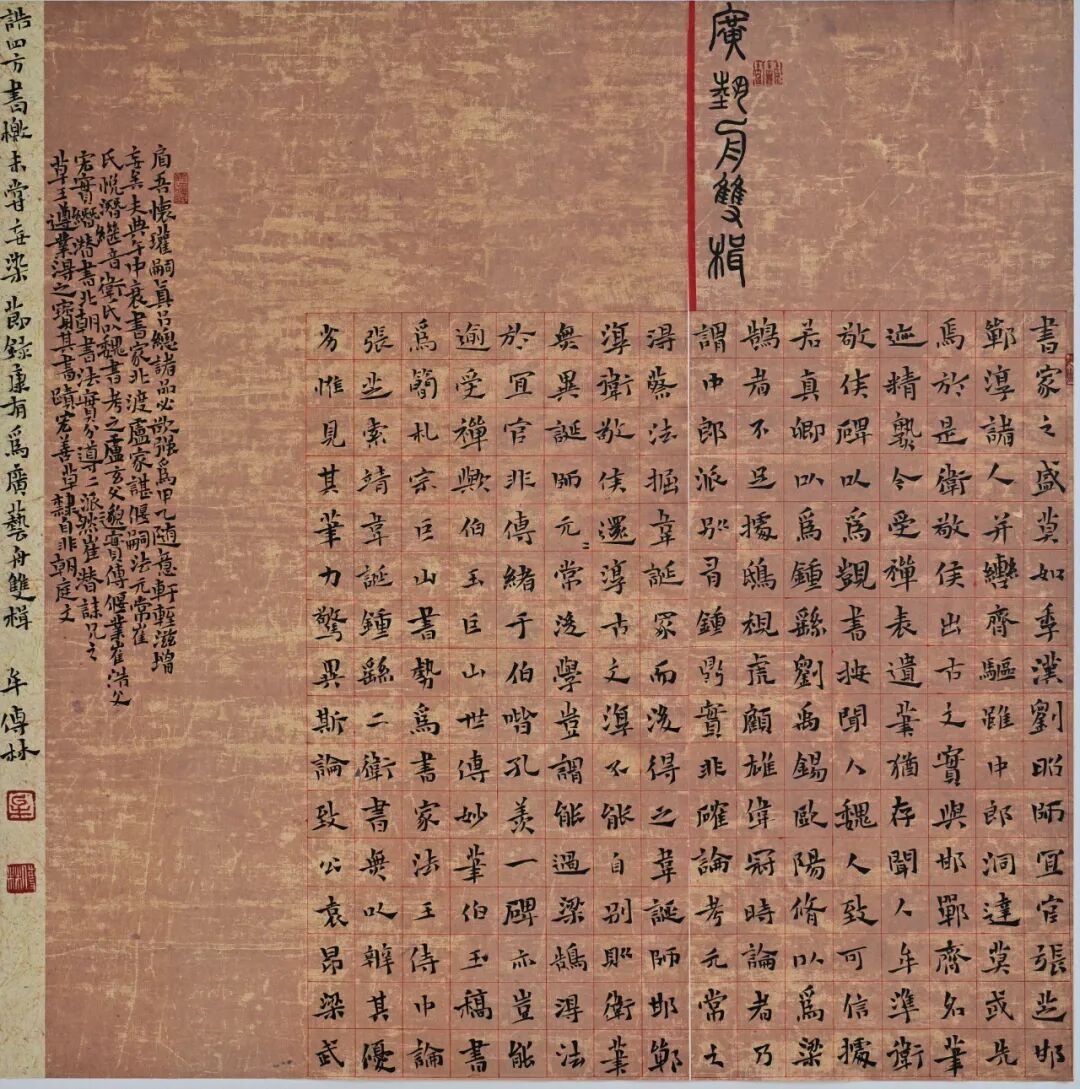 廣埶舟雙楫
書家之盛莫如季漢劉昭師宜官張芝邯
鄲淳諸人并轡齊驅雖中郎洞達莫或先
焉於是衛敬侯出古文實與邯鄲齊名筆
迹精熟今受禪表遺筆猶存聞人牟準衛
敬侯碑以爲覬書按聞人魏人致可信據
若真卿以爲鍾繇劉禹錫歐陽脩以爲梁
鵠者不足據鴟視虎顧雄偉冠時論者乃
謂中郎派別有鍾實非確論考元常之
得蔡法掘韋誕冢而後得之韋誕師邯鄲
淳衛敬侯還淳古文淳不能自別則衛筆
無異誕師元常後學豈謂能過梁鵠得法
於宜官非傳緒于伯喈孔羨一碑亦豈能
逾受禪歟伯玉巨山世傳妙筆伯玉稿書
爲簡札宗巨山書勢爲書家法王侍中論
張芝索靖韋誕鍾繇二衛書無以辨其優
劣惟見其筆力驚異斯論致公袁昂梁武
肩吾懷瓘嗣真吕總諸品必欲强爲甲乙隨意軒輊滋增
妄矣夫典午中衰書家北渡盧家諶偃嗣法元常崔
氏悅潛繼音衛氏以魏書考之盧玄父邈實傳偃業崔浩父
宏實纘潛書北朝書法實分導二派然崔潛誄兄之
草王遵業得之寶其書蹟宏善草隸自非朝庭文
誥四方書檄未嘗妄染 節錄康有爲廣藝舟雙楫 牟傳林